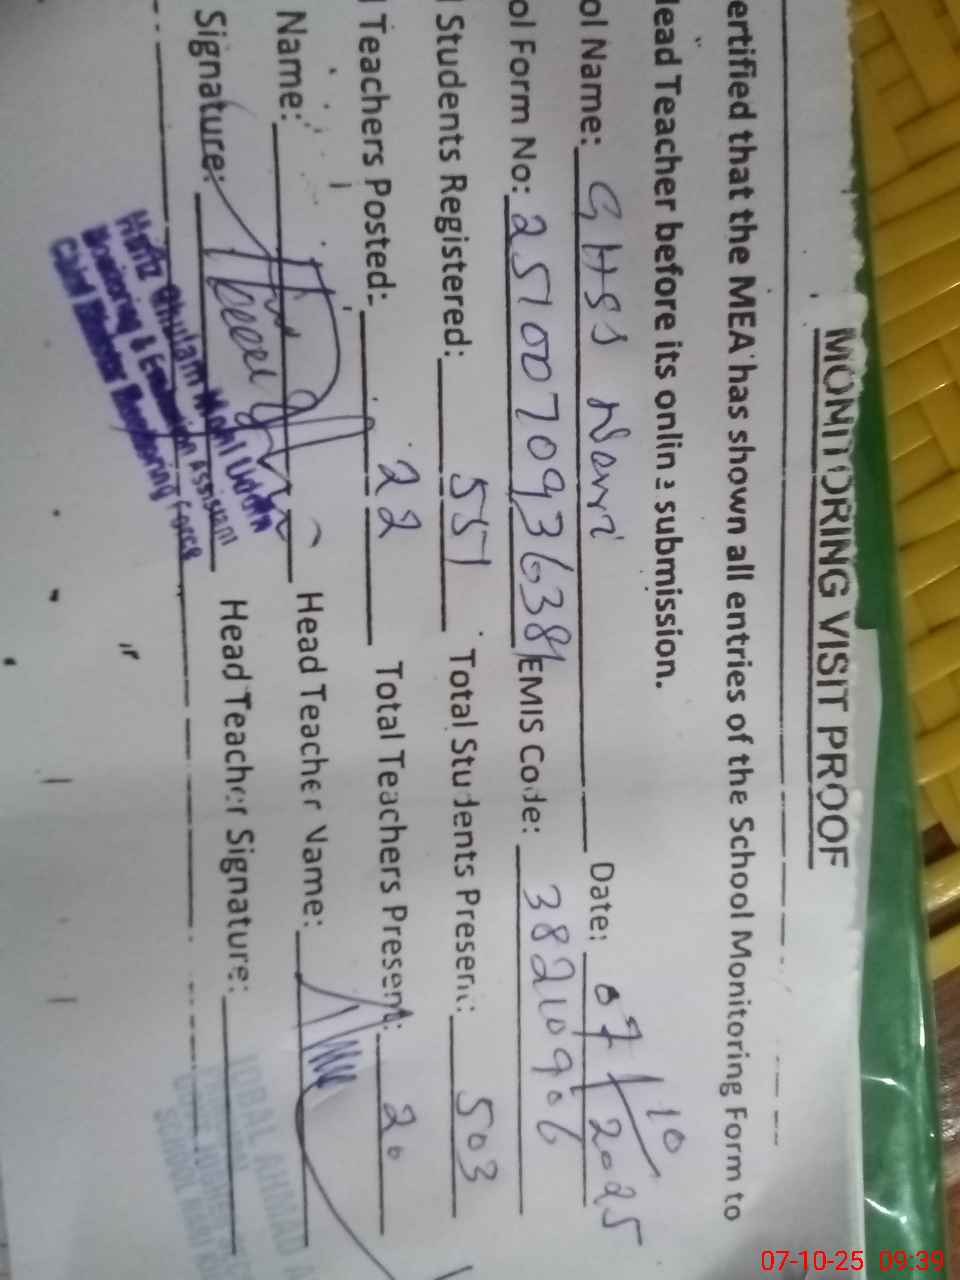 MONITORING VISIT PROOF
ertified that the MEA has shown all entries of the School Monitoring Form to
lead Teacher before its online submission.
ol Name: GHSS Narri Date: 07/10/2025
ol Form No: 2510070936381 EMIS Code: 38210906
l Students Registered: 551 Total Students Present: 503
l Teachers Posted: 22 Total Teachers Present: 20
Name: Head Teacher Name:
Signature: Head Teacher Signature:
Hafiz Ghulam Mohi Uddin
Monitoring & Evaluation Assistant
Chief Minister Monitoring Force
IQBAL AHMAD
07-10-25 09:39